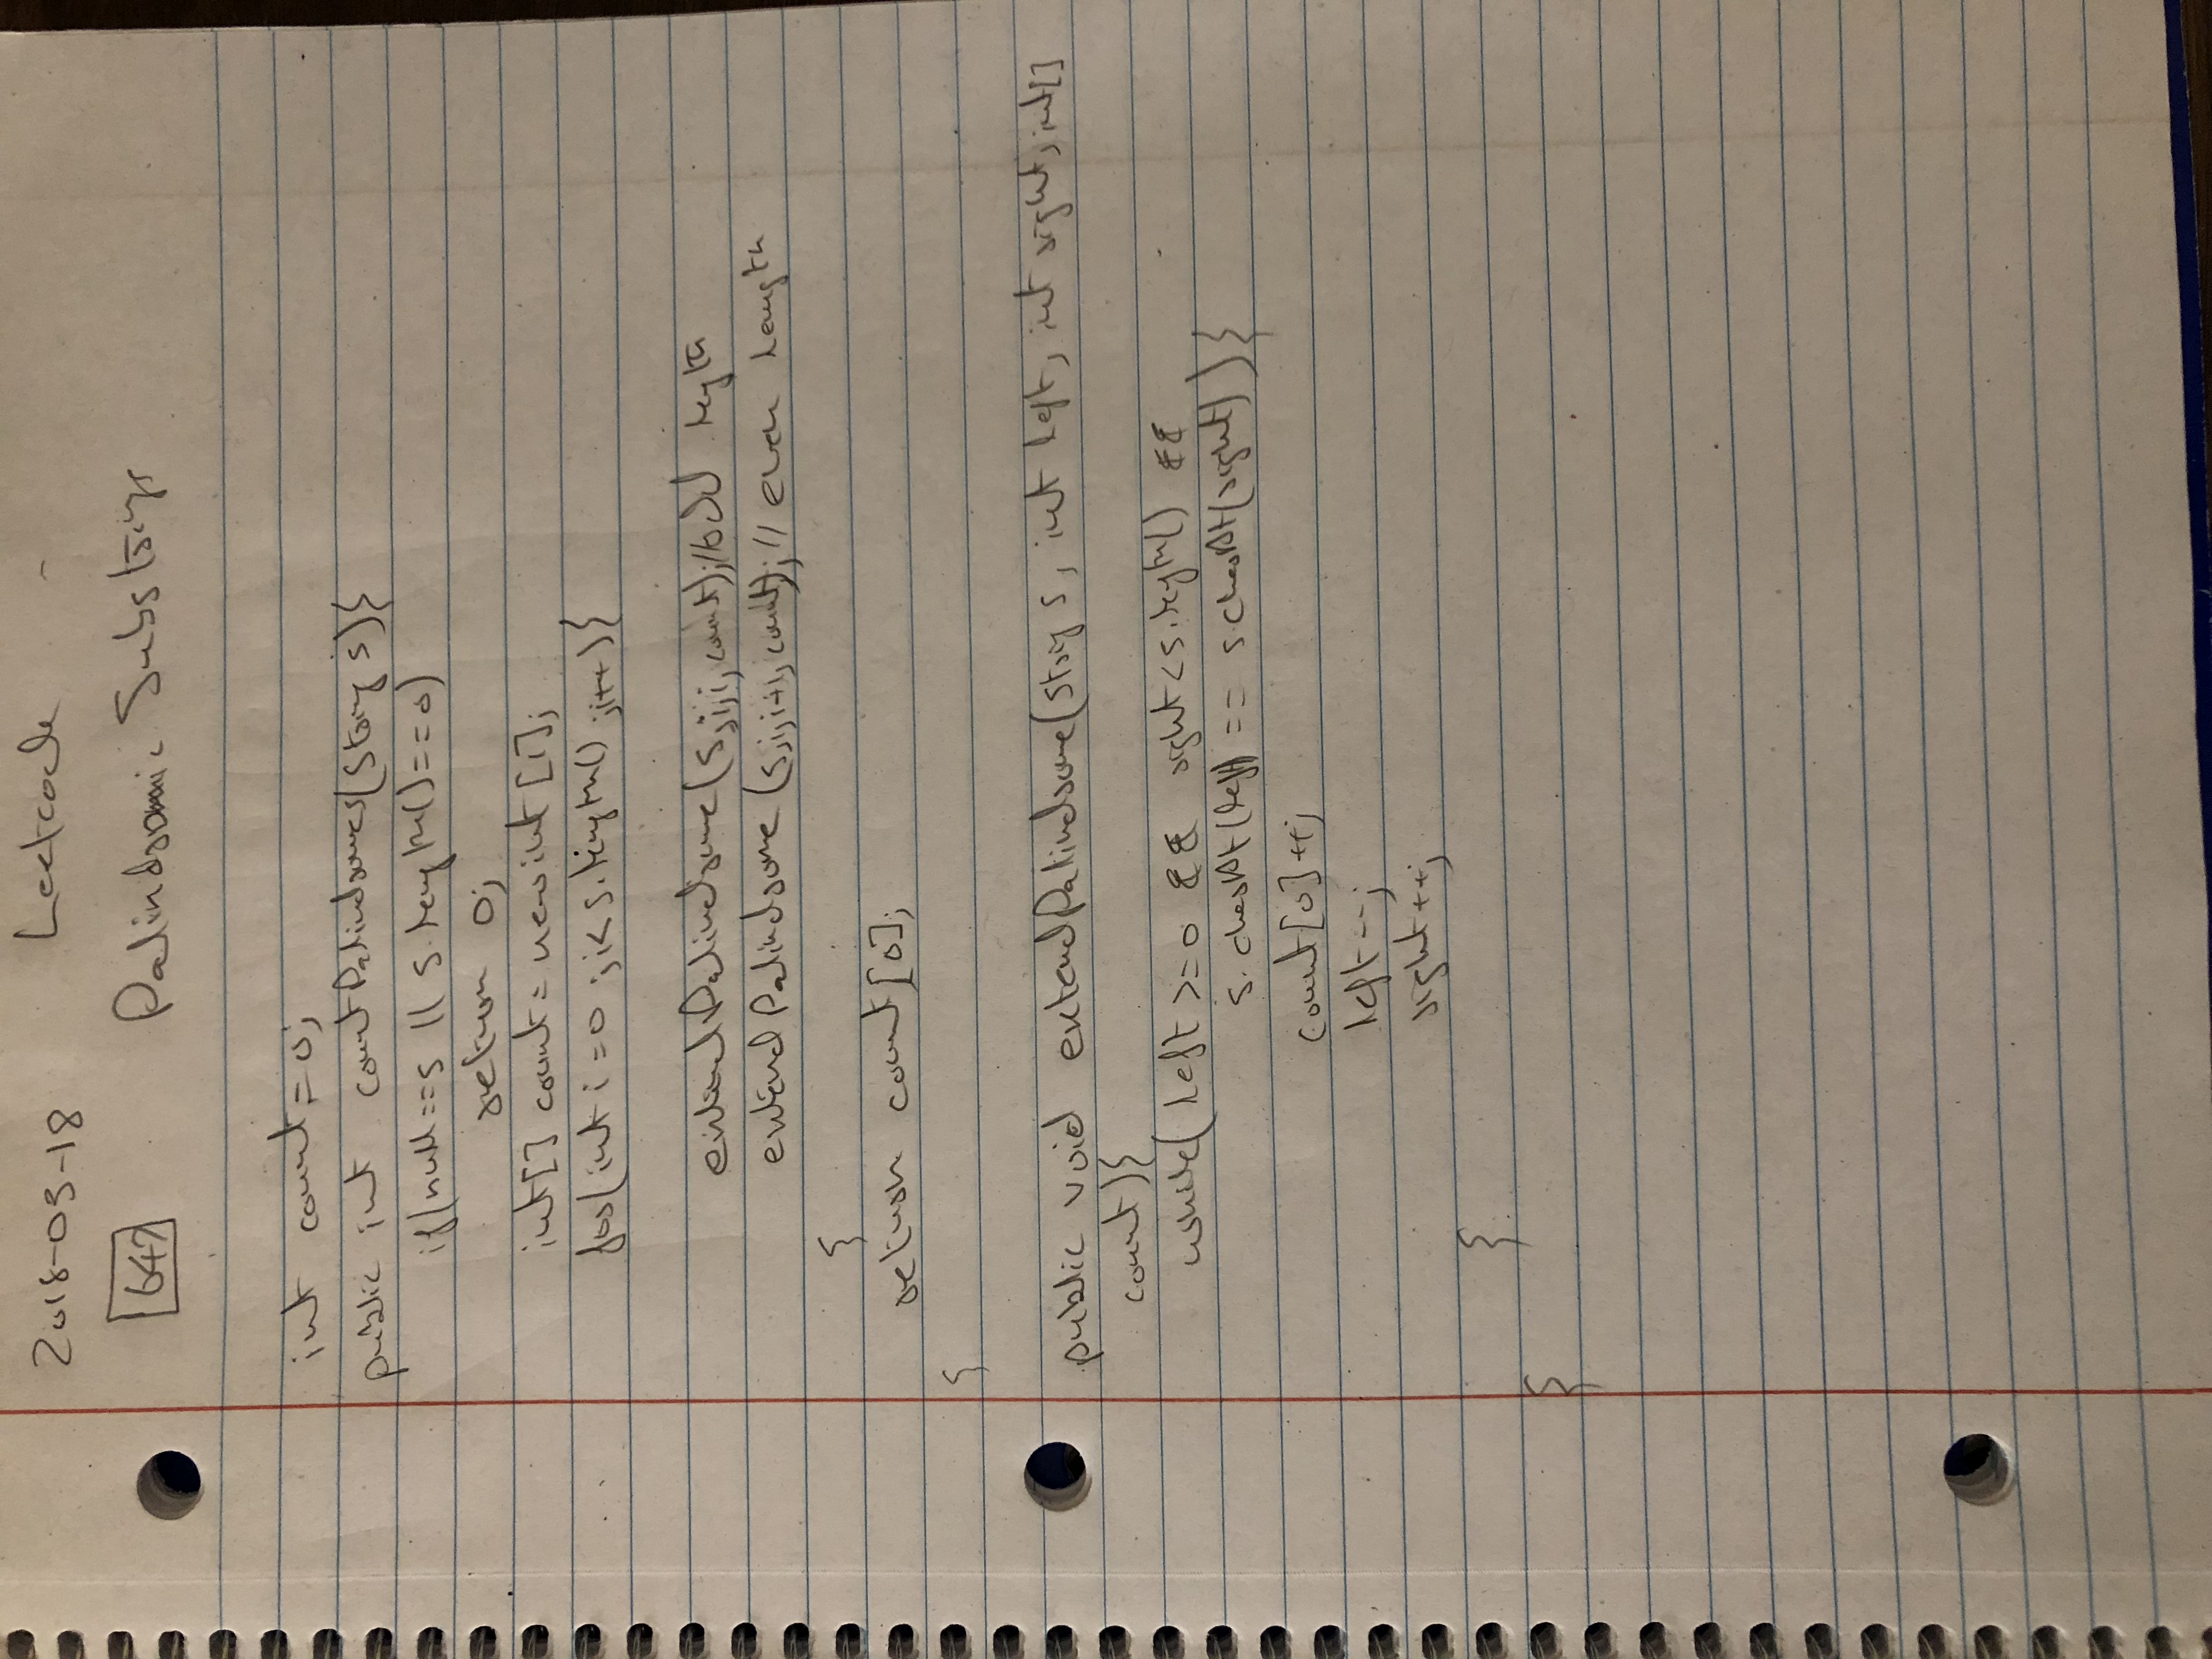 2018-03-18 Leetcode -
647 Palindromic Substrings
int count = 0;
public int countPalindromes(String s){
if(null==s || s.length()==0)
return 0;
int[] count = new int [1];
for(int i=0 ;i< s.length() ;i++){
extendPalindrome(s,i,i,count);//odd length
extendPalindrome (s,i,i+1,count);// even length
}
return count[0];
}
public void extendPalindrome(String s, int left, int right, int[]
count){
while( left >=0 && right<s.length() &&
s.charAt(left) == s.charAt(right)){
count[0]++;
left--;
right++;
}
}